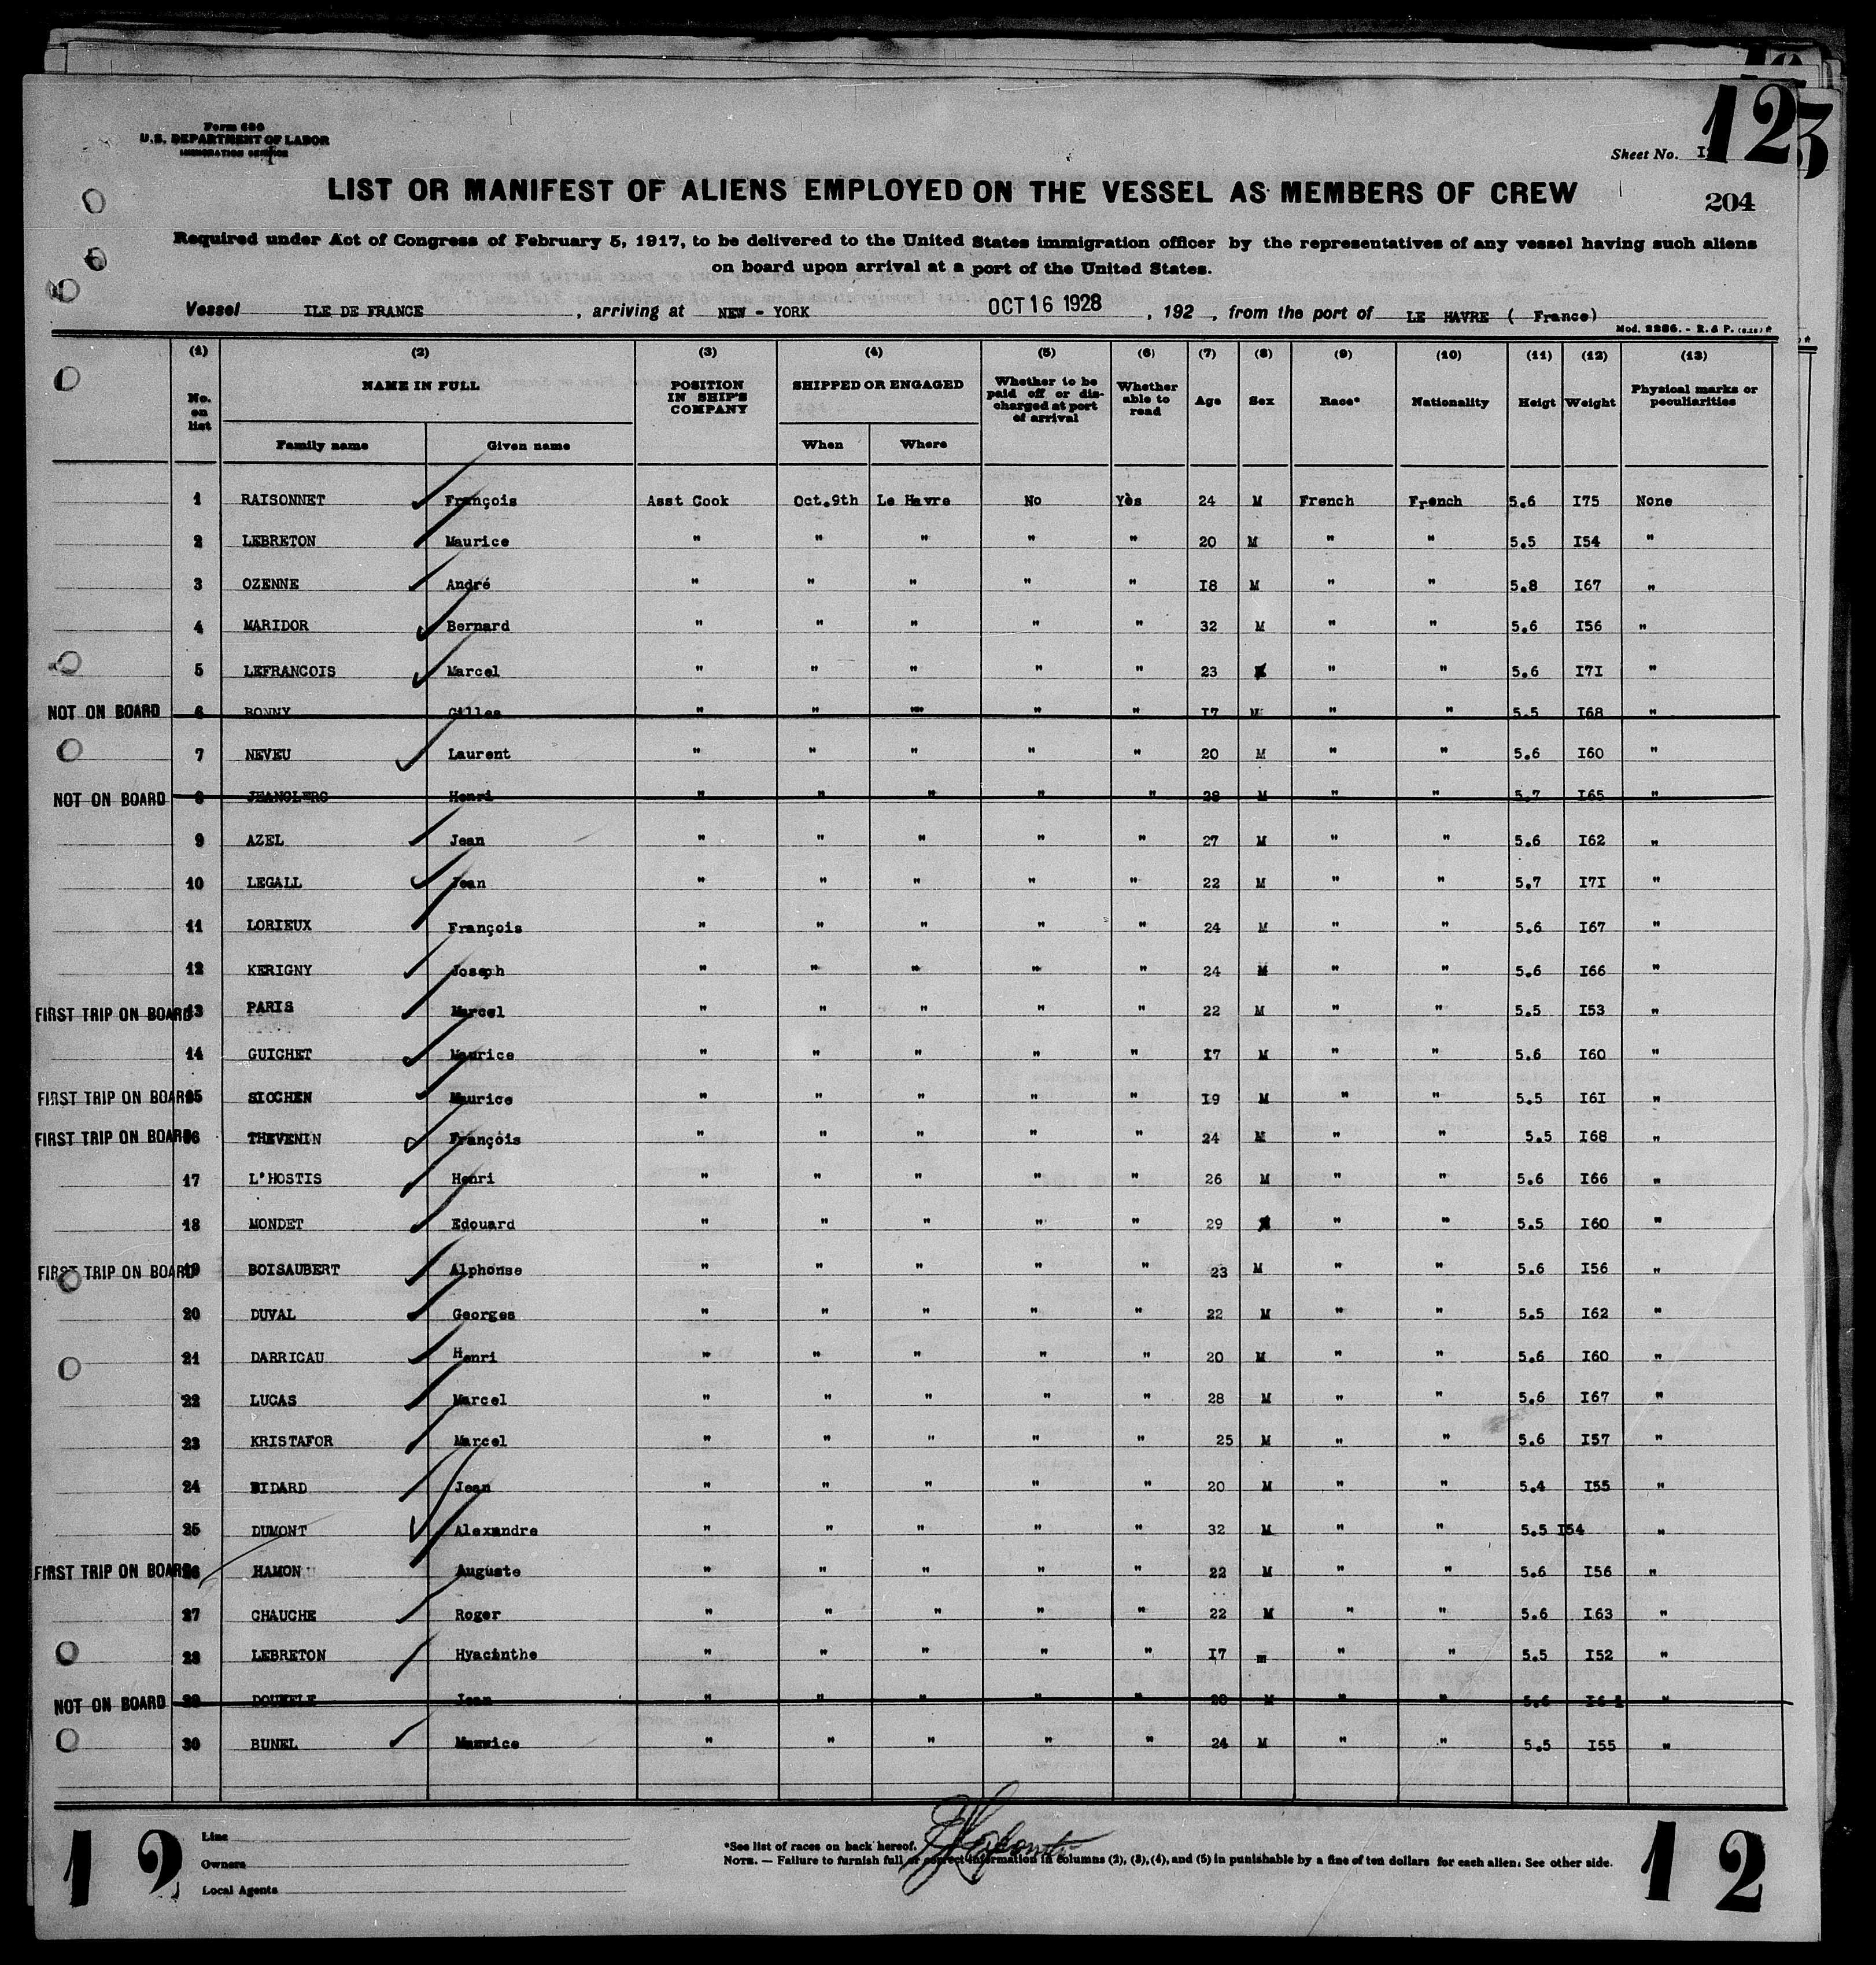 12
3
Form 680
U.S. DEPARTMENT OF LABOR
IMMIGRATION SERVICE
Sheet No.
LIST OR MANIFEST OF ALIENS EMPLOYED ON THE VESSEL AS MEMBERS OF CREW
204
Required under Act of Congress of February 5, 1917, to be delivered to the United States immigration officer by the representatives of any vessel having such aliens
on board upon arrival at a port of the United States.
Vessel ILE DE FRANCE , arriving at NEW - YORK OCT 16 1928 , 192 , from the port of LE HAVRE ( France)
Mod. 2286. - R. & P.
(1) (2) (3) (4) (5) (6) (7) (8) (9) (10) (11) (12) (13)
No. on list NAME IN FULL Family name Given name POSITION IN SHIP'S COMPANY SHIPPED OR ENGAGED When Where Whether to be paid off or discharged at port of arrival Whether able to read Age Sex Race* Nationality Heigt Weight Physical marks or peculiarities
1 RAISONNET François Asst Cook Oct.9th Le Havre No Yès 24 M French French 5.6 I75 None
2 LEBRETON Maurice " " " " " 20 M " " 5.5 I54 "
3 OZENNE André " " " " " I8 M " " 5.8 I67 "
4 MARIDOR Bernard " " " " " 32 M " " 5.6 I56 "
5 LEFRANCOIS Marcel " " " " " 23 M " " 5.6 I7I "
NOT ON BOARD 6 BONNY Gilles " " " " " I7 M " " 5.5 I68 "
7 NEVEU Laurent " " " " " 20 M " " 5.6 I60 "
NOT ON BOARD 8 JEANCLERC Henri " " " " " 28 M " " 5.7 I65 "
9 AZEL Jean " " " " " 27 M " " 5.6 I62 "
10 LEGALL Jean " " " " " 22 M " " 5.7 I7I "
11 LORIEUX François " " " " " 24 M " " 5.6 I67 "
12 KERIGNY Joseph " " " " " 24 M " " 5.6 I66 "
FIRST TRIP ON BOARD 13 PARIS Marcel " " " " " 22 M " " 5.5 I53 "
14 GUICHET Maurice " " " " " I7 M " " 5.6 I60 "
FIRST TRIP ON BOARD 15 SIOCHEN Maurice " " " " " I9 M " " 5.5 I6I "
FIRST TRIP ON BOARD 16 THEVENIN François " " " " " 24 M " " 5.5 I68 "
17 L'HOSTIS Henri " " " " " 26 M " " 5.6 I66 "
18 MONDET Edouard " " " " " 29 M " " 5.5 I60 "
FIRST TRIP ON BOARD 19 BOISAUBERT Alphonse " " " " " 23 M " " 5.6 I56 "
20 DUVAL Georges " " " " " 22 M " " 5.5 I62 "
21 DARRICAU Henri " " " " " 20 M " " 5.6 I60 "
22 LUCAS Marcel " " " " " 28 M " " 5.6 I67 "
23 KRISTAFOR Marcel " " " " " 25 M " " 5.6 I57 "
24 BIDARD Jean " " " " " 20 M " " 5.4 I55 "
25 DUMONT Alexandre " " " " " 32 M " " 5.5 I54 "
FIRST TRIP ON BOARD 26 HAMON Auguste " " " " " 22 M " " 5.6 I56 "
27 CHAUCHE Roger " " " " " 22 M " " 5.6 I63 "
28 LEBRETON Hyacinthe " " " " " I7 m " " 5.5 I52 "
NOT ON BOARD 29 Jean " " " " " M " " 5.6 "
30 BUNEL Maurice " " " " " 24 M " " 5.5 I55 "
12
Line
Owners
Local Agents
*See list of races on back hereof.
NOTE. — Failure to furnish full or correct information in columns (2), (3), (4), and (5) in punishable by a fine of ten dollars for each alien. See other side.
12